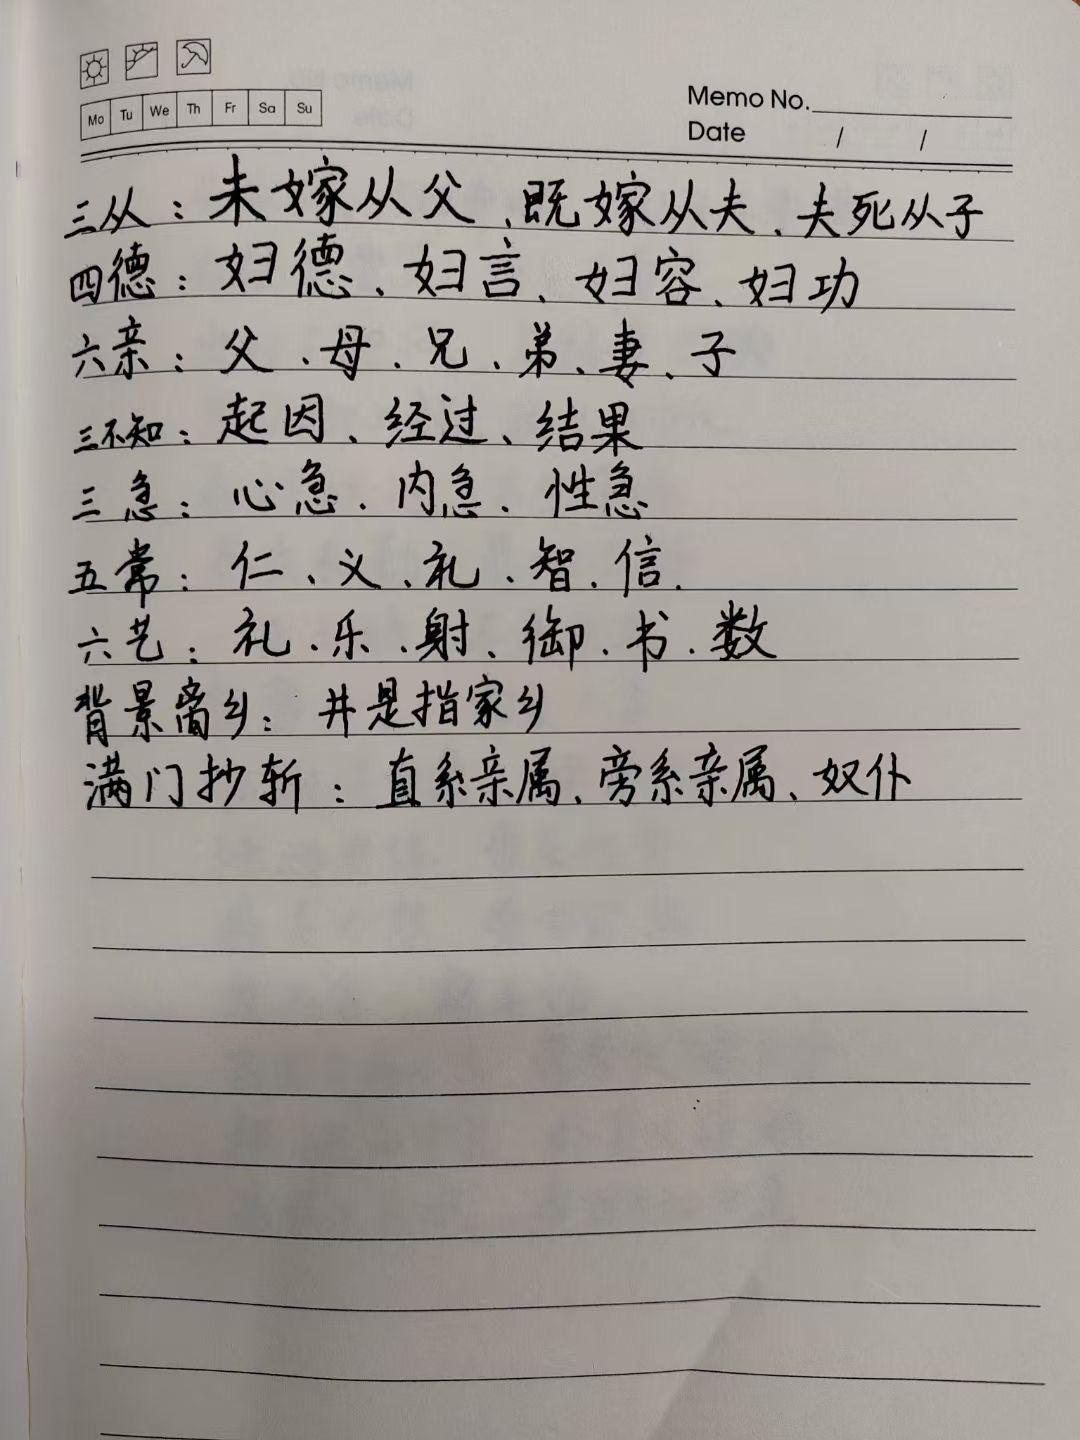 Mo Tu We Th Fr Sa Su
Memo No.
Date / /
三从：未嫁从父、既嫁从夫、夫死从子
四德：妇德、妇言、妇容、妇功
六亲：父、母、兄、弟、妻、子
三不知：起因、经过、结果
三急：心急、内急、性急
五常：仁、义、礼、智、信.
六艺：礼、乐、射、御、书、数
背景离乡：井是指家乡
满门抄斩：直系亲属、旁系亲属、奴仆